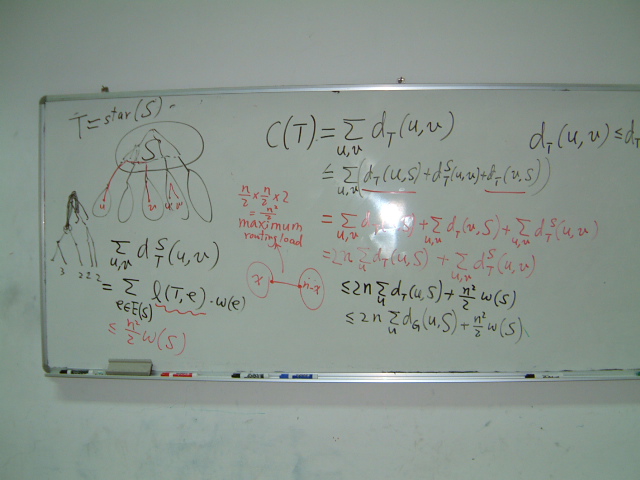 T = star(S).
S
u v u v
3 2 2 2
Σ_{u,v} d_T^S(u,v)
= Σ_{e∈E(S)} l(T,e)·w(e)
≤ n²/2 w(S)
n/2 × n/2 × 2
= n²/2
maximum
routing load
x n-x
C(T) = Σ_{u,v} d_T(u,v)
≤ Σ_{u,v} (d_T(u,S) + d_T^S(u,v) + d_T(v,S))
= Σ_{u,v} d_T(u,S) + Σ_{u,v} d_T(v,S) + Σ_{u,v} d_T^S(u,v)
= 2n Σ_u d_T(u,S) + Σ_{u,v} d_T^S(u,v)
≤ 2n Σ_u d_T(u,S) + n²/2 w(S)
≤ 2n Σ_u d_G(u,S) + n²/2 w(S)
d_T(u,v) ≤ d_T